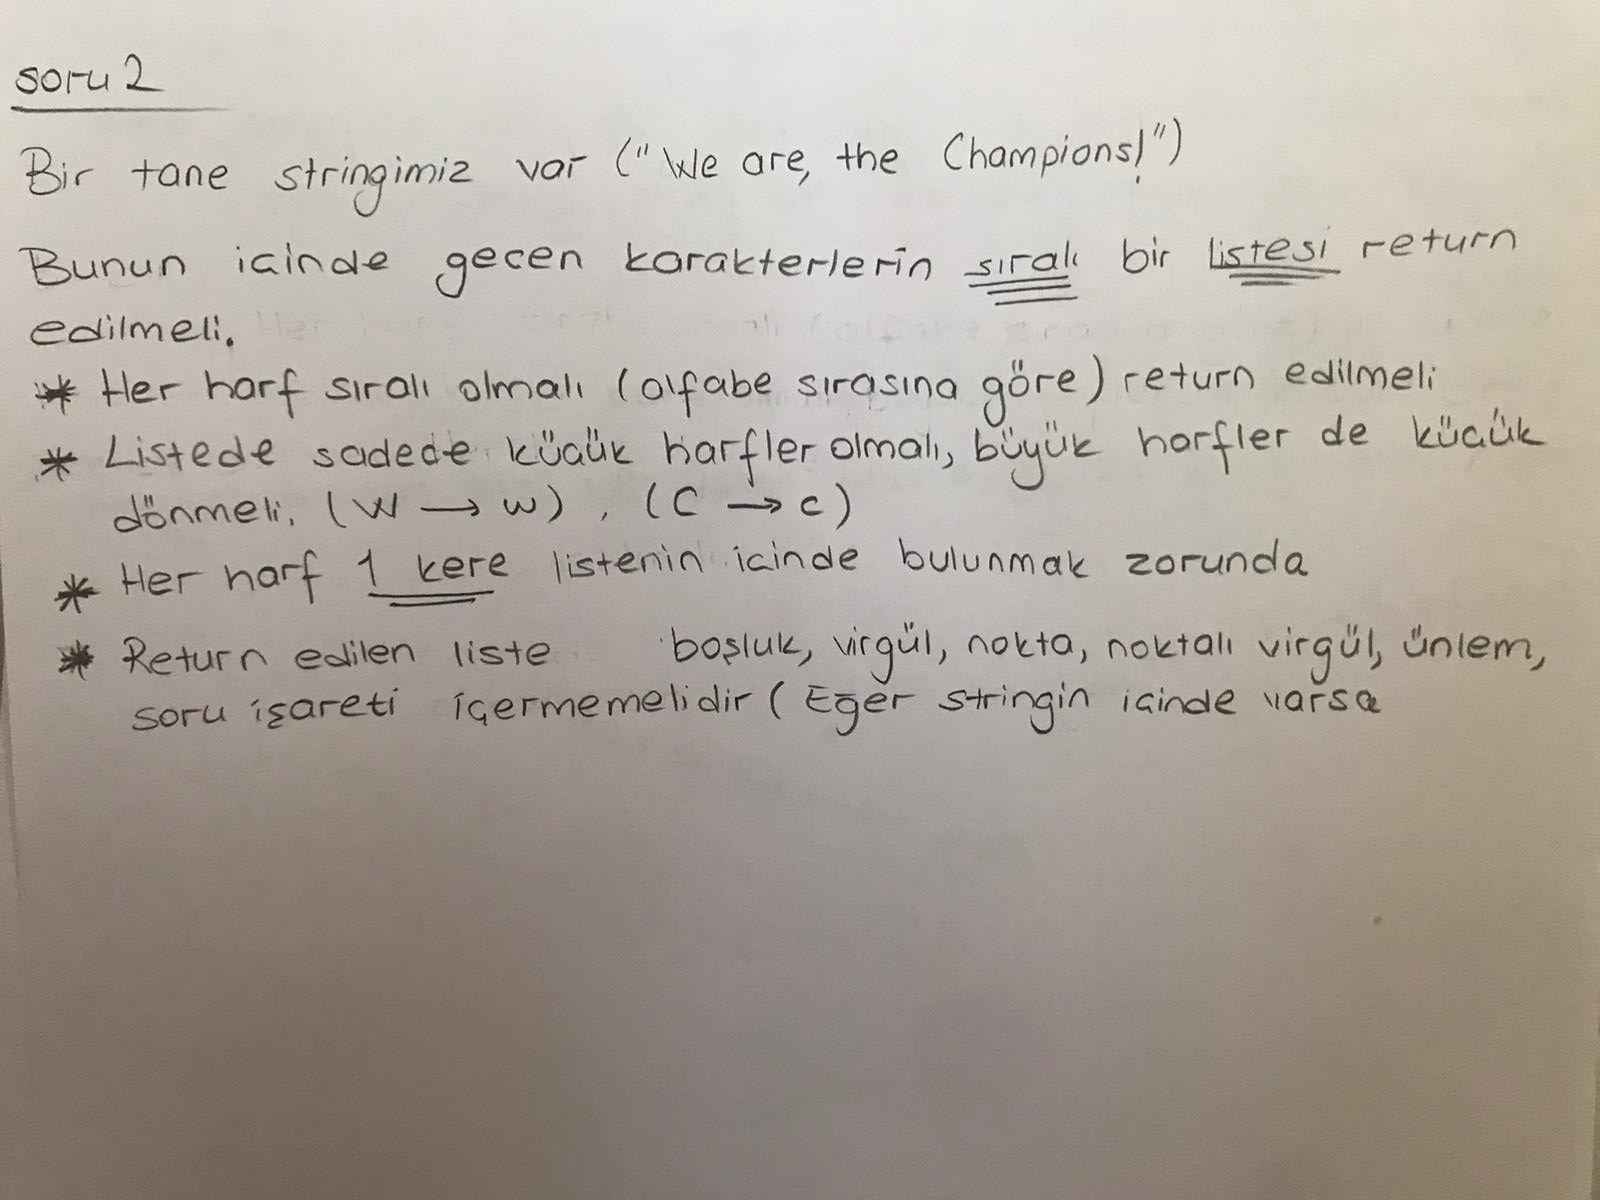 soru 2
Bir tane stringimiz var ("We are, the Champions!")
Bunun icinde gecen karakterlerin sıralı bir listesi return
edilmeli.
* Her harf sıralı olmalı (alfabe sırasına göre) return edilmeli
* Listede sadece kücük harfler olmalı, büyük harfler de kücük
dönmeli. (W → w), (C → c)
* Her harf 1 kere listenin icinde bulunmak zorunda
* Return edilen liste boşluk, virgül, nokta, noktalı virgül, ünlem,
soru işareti içermemelidir (Eğer stringin icinde varsa